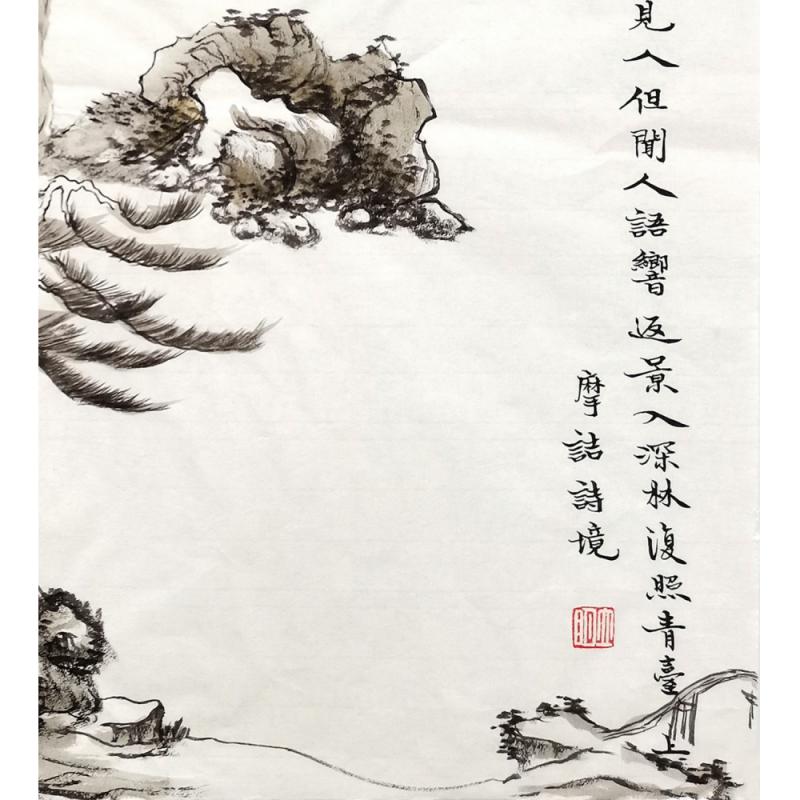 見人但聞人語響返景入深林復照青臺上
摩詰詩境